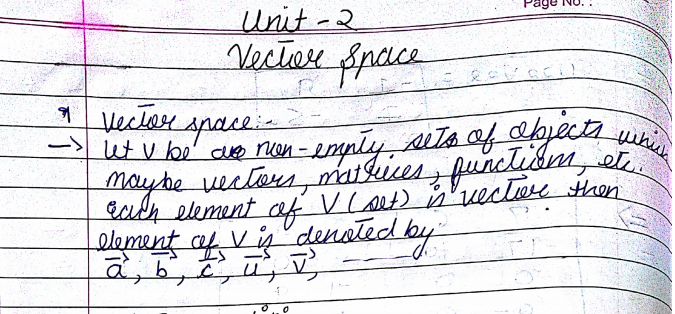 Page No. :
Unit - 2
Vector Space
* Vector space :-
→ Let V be non-empty sets of objects which
maybe vectors, matrices, functions, etc.
each element of V (set) is vector then
element of V is denoted by
a⃗, b⃗, c⃗, u⃗, v⃗, ———